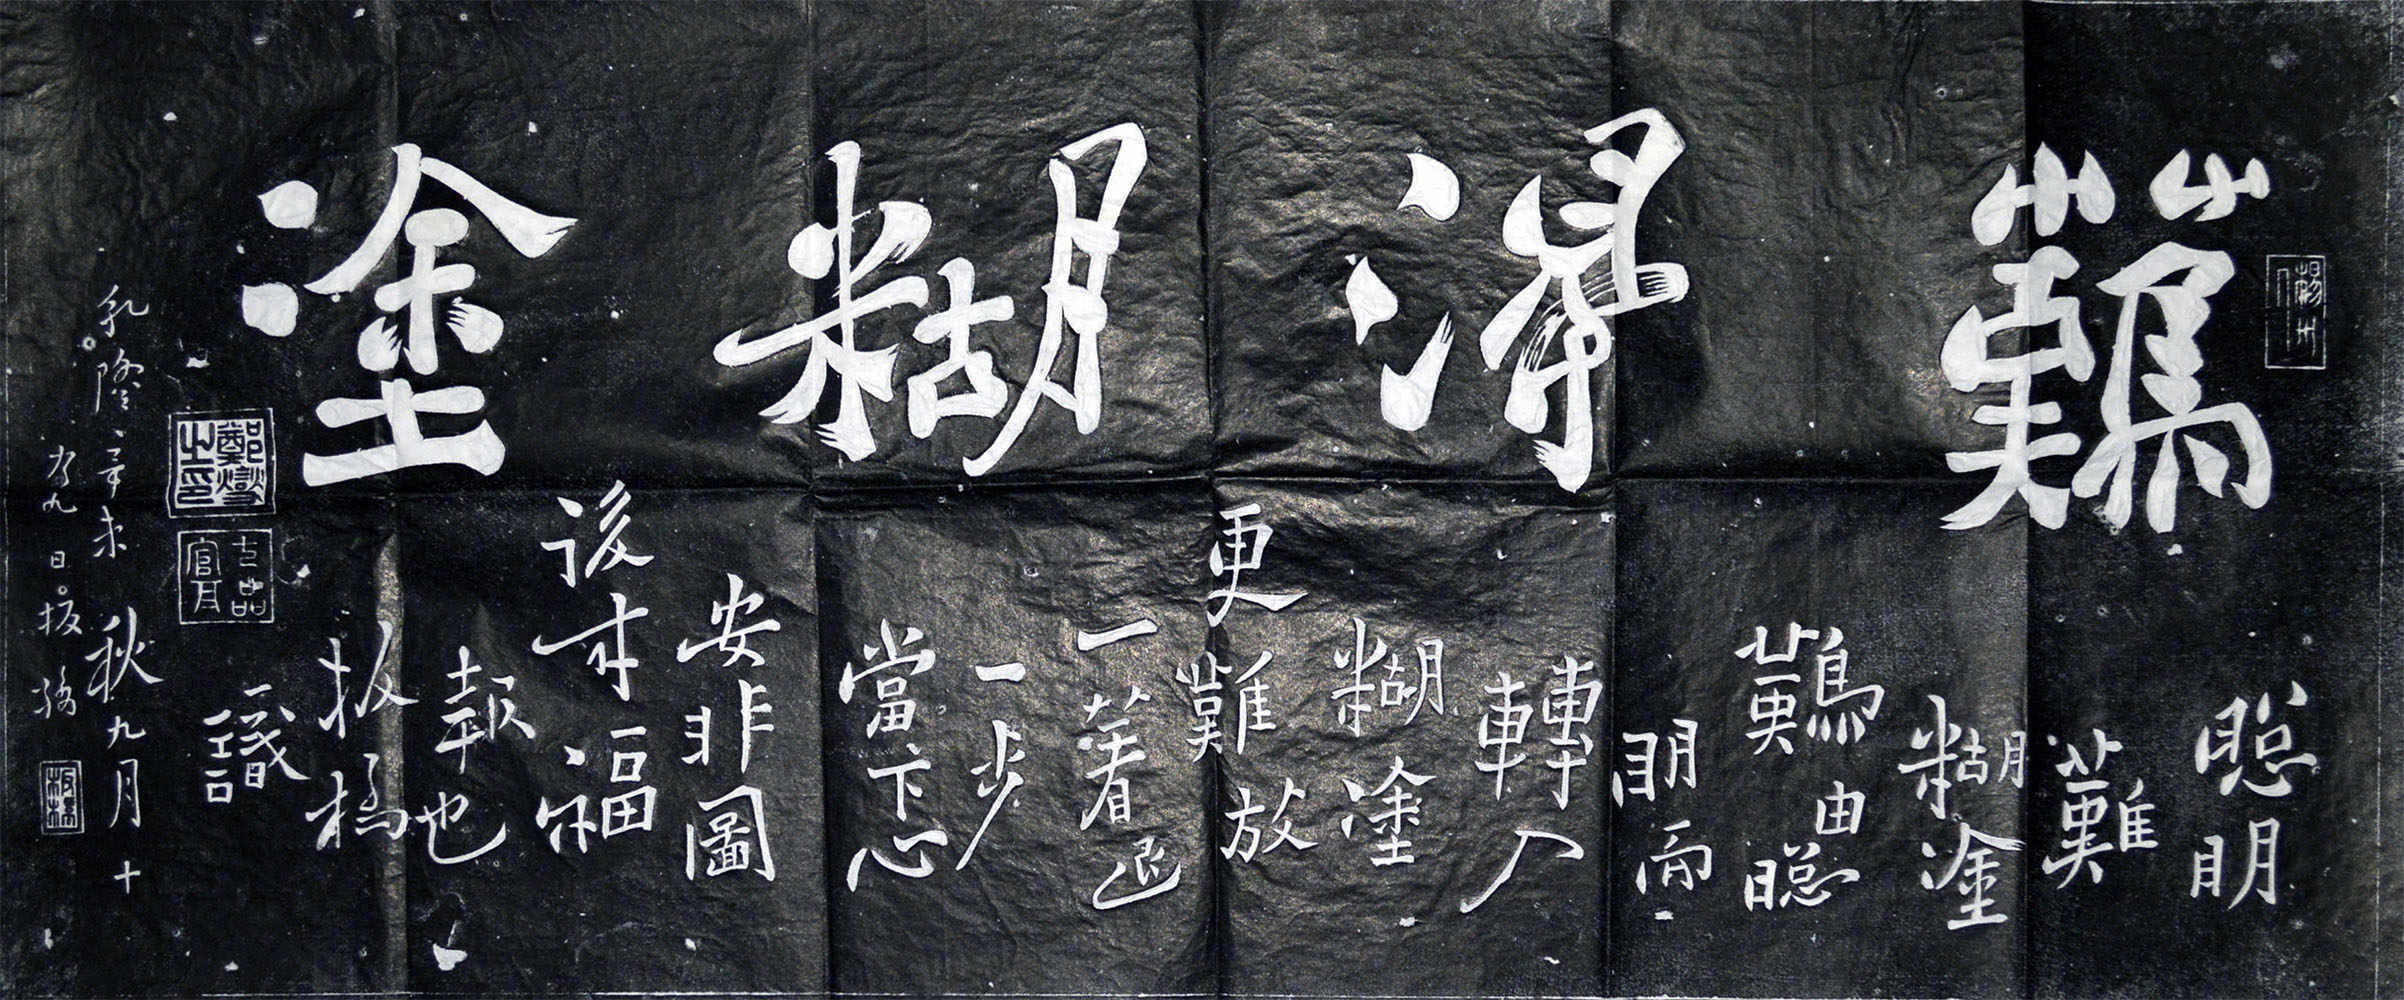 難得糊塗
聰明
難
糊塗
難由聰
明而
轉入
糊塗
更難放
一著退
一步
當下心
安非圖
後來福
報也
板橋
識
乾隆辛未秋九月十
有九日板橋
鄭燮之印
七品官耳
板橋
揚州